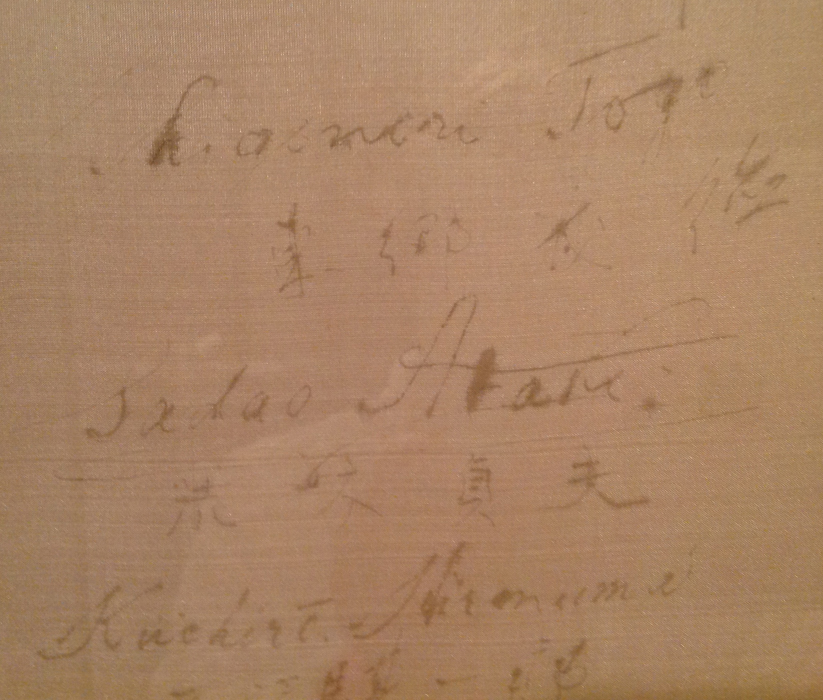 Shigenori Togo
東 郷 茂 徳
Sadao Araki
荒 木 貞 夫
Kiichiro Hiranuma